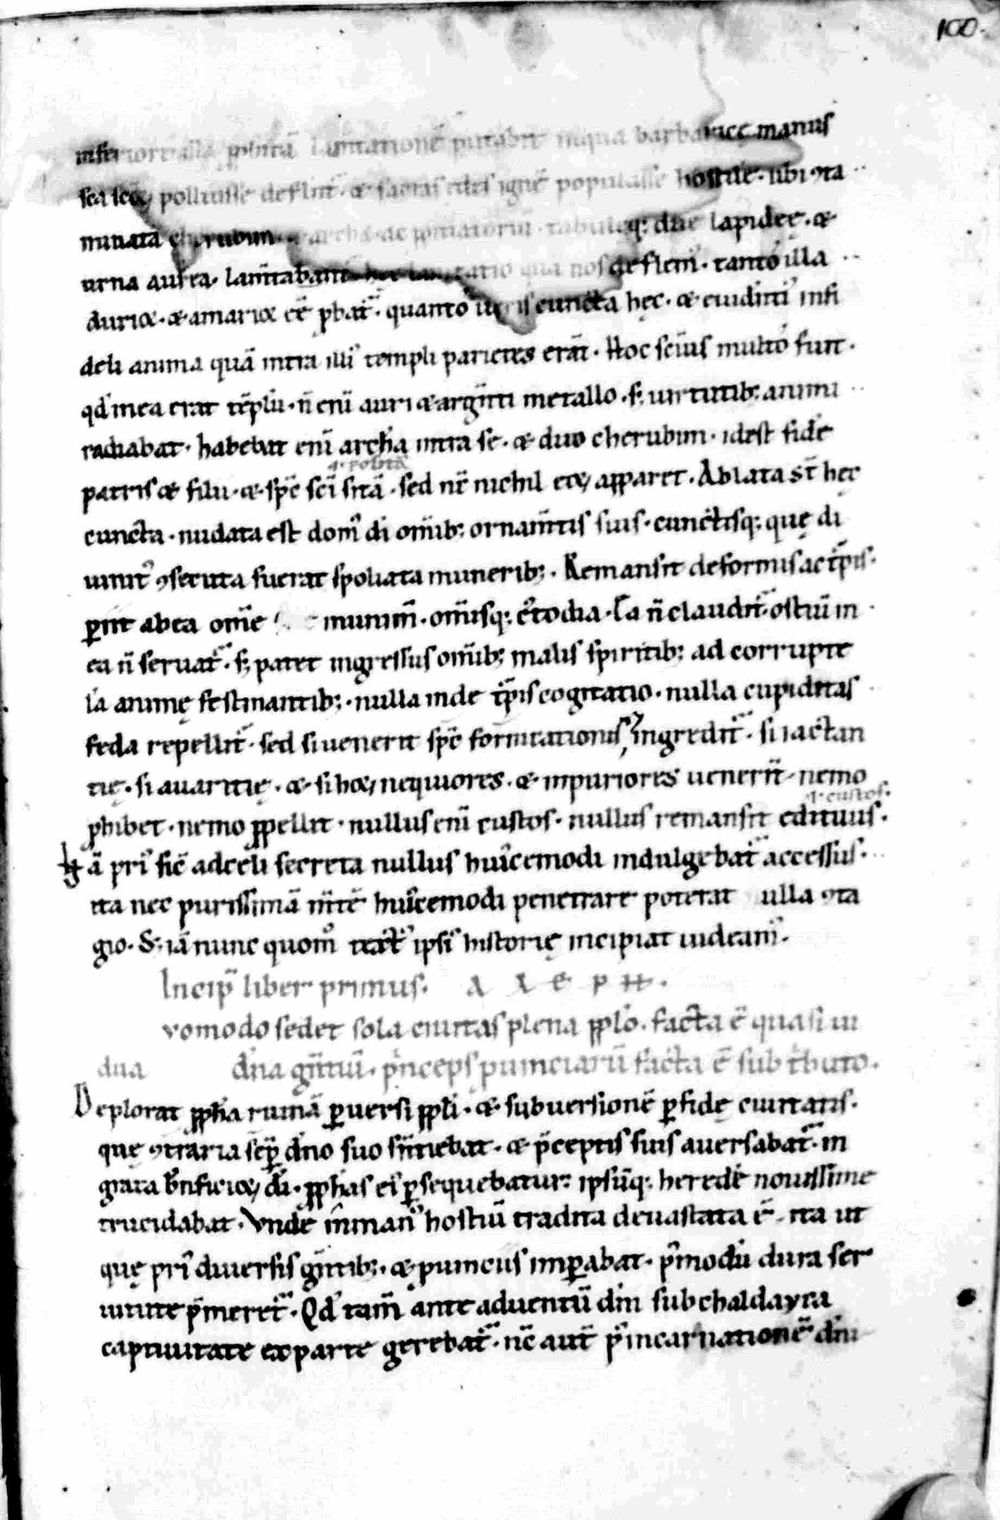 100.
inferiorē illā pphetā lam̄tationē putabit in qua barbaricę manus
sc̄a sc̄oꝝ polluisse deflet̄ · & sacras edes ignē populasse hostilē · ubi ꝯta
minata cherubim · & archa · ac · tabulęq; due lapideę · &
urna aurea · lam̄tabant̄ hec lam̄tatio qua nos deflem᷒ · tanto illa
durior · & amarior eē ꝓbat᷑ · quanto cuncta hęc · & euidenti᷒ in fi
deli anima quā intra illi᷒ templi parietes erāt · Hoc sci᷒ multo fuit ·
qd̄ in ea erat tēplū · n̄ eni auri & argēti metallo · s; uirtutib; animi
radiabat · habebat eni archā intra se · & duo cherubim · idest fidē
.i. positā
patris & filii · & sp̄c sc̄i sitā · sed nc̄ nichil eoꝝ apparet · Ablata st̄ hec
cuncta · nudata est dom᷒ dī om̄ib; ornam̄tis suis · cunctisq; quę di
uinit᷒ ꝯsecuta fuerat spoliata munerib; · Remansit deformis ac tꝑis ·
periit ab ea om̄e munim̄ · om̄isq; c᷒todia · Iā n̄ claudit᷑ ostiū in
ea n̄ seruat᷑ · s; patet ingressus om̄ib; malis spiritib; ad corrupte
lā animę festinantib; · nulla inde tꝑis cogitatio · nulla cupiditas
feda repellit᷑ · sed si uenerit sp̄c fornicationis ingredit᷑ · si iactan
tię · si auaritię · & si hoꝝ nequiores · & inpuriores uenerīt nemo
.i. custos.
ꝓhibet · nemo ꝓpellit · nullus eni custos · nullus remansit edituus ·
Nā pri᷒ sic̄ ad celi secreta nullus hui᷒cemodi indulgebat᷑ accessus ·
ita nec purissimā m̄tē hui᷒cemodi penetrare poterat ulla ꝯta
gio · S; iā nunc quom̊ text᷒ ipsi᷒ historię incipiat uideam᷒ ·
Incip̄ liber primus. A L E P H .
vomodo sedet sola ciuitas plena pplo · facta ē quasi ui
dua dn̄a gn̄tiū · p̄nceps puinciarū facta ē sub t̄buto ·
Deplorat pphā ruinā ꝑuersi ppli · & subuersionē ꝑfidę ciuitatis ·
quę ꝯtraria sēꝑ dn̄o suo sn̄tiebat · & p̄ceptis suis auersabat᷑ · in
grata bn̄ficioꝝ dī · pphās ei᷒ ꝑsequebatur · ipsūq; heredē nouissime
trucidabat · Vnde in man᷒ hostiū tradita deuastata ē · ita ut
quę pri᷒ diuersis gn̄tib; · & puinciis imꝑabat · p᷒modū dura ser
uitute p̄meret᷑ · Qd̄ tam̄ ante aduentū dn̄i sub chaldayca
captiuitate ex parte gerebat᷑ · nc̄ aut̄ p᷒ incarnationē dn̄i